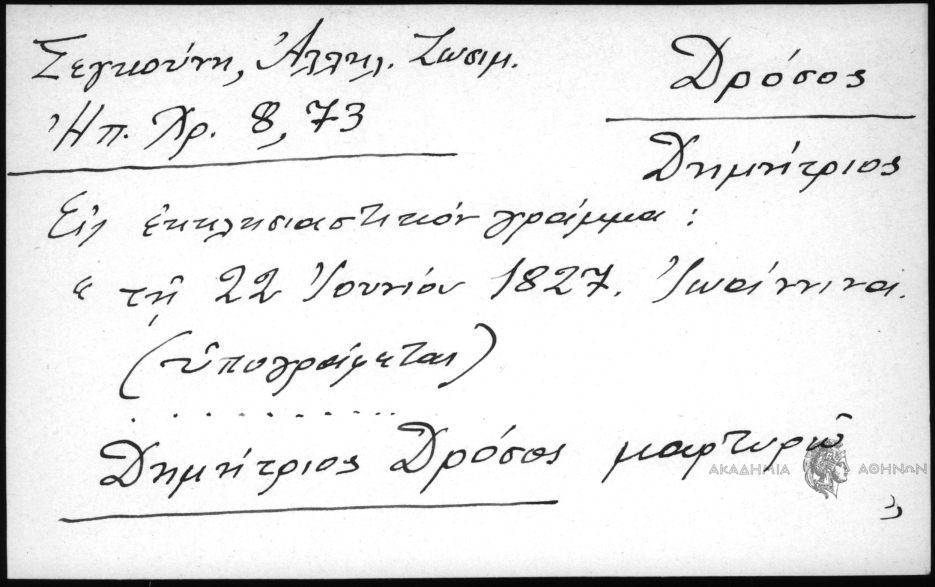 Σεγκούνη, Ἀλληλ. Ζωσιμ.
Ἠπ. Χρ. 8, 73
Δρόσος
Δημήτριος
Εἰς ἐκκλησιαστικόν γράμμα:
" τῇ 22 Ἰουνίου 1827. Ἰωάννινα.
(ὑπογράφεται)
. . . . . . . . . .
Δημήτριος Δρόσος μαρτυρῶ
ΑΚΑΔΗΜΙΑ ΑΘΗΝΩΝ
"